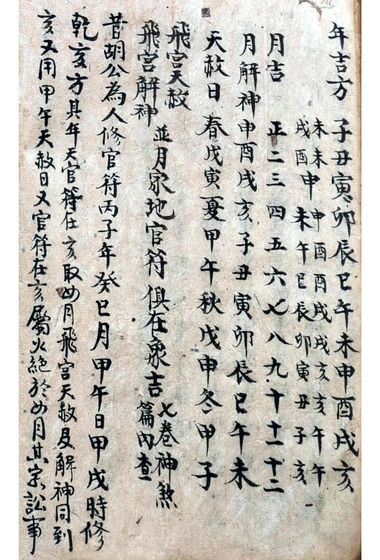 年吉方 子丑寅卯辰巳午未申酉戌亥
未未申申酉酉戌戌亥亥午午
戌酉未午巳辰卯寅丑子亥
月吉 正二三四五六七八九十十一十二
月解神申酉戌亥子丑寅卯辰巳午未
天赦日 春戊寅夏甲午秋戊申冬甲子
飛宮天赦
飛宮解神
並月家地官符俱在衆吉
七卷神煞
篇內查
昔胡公為人修官符丙子年癸巳月甲午日甲戌時修
乾亥方其年天官符在亥取四月飛宮天赦及解神同到
亥又用甲午天赦日又官符在亥屬火絕於四月其家訟事